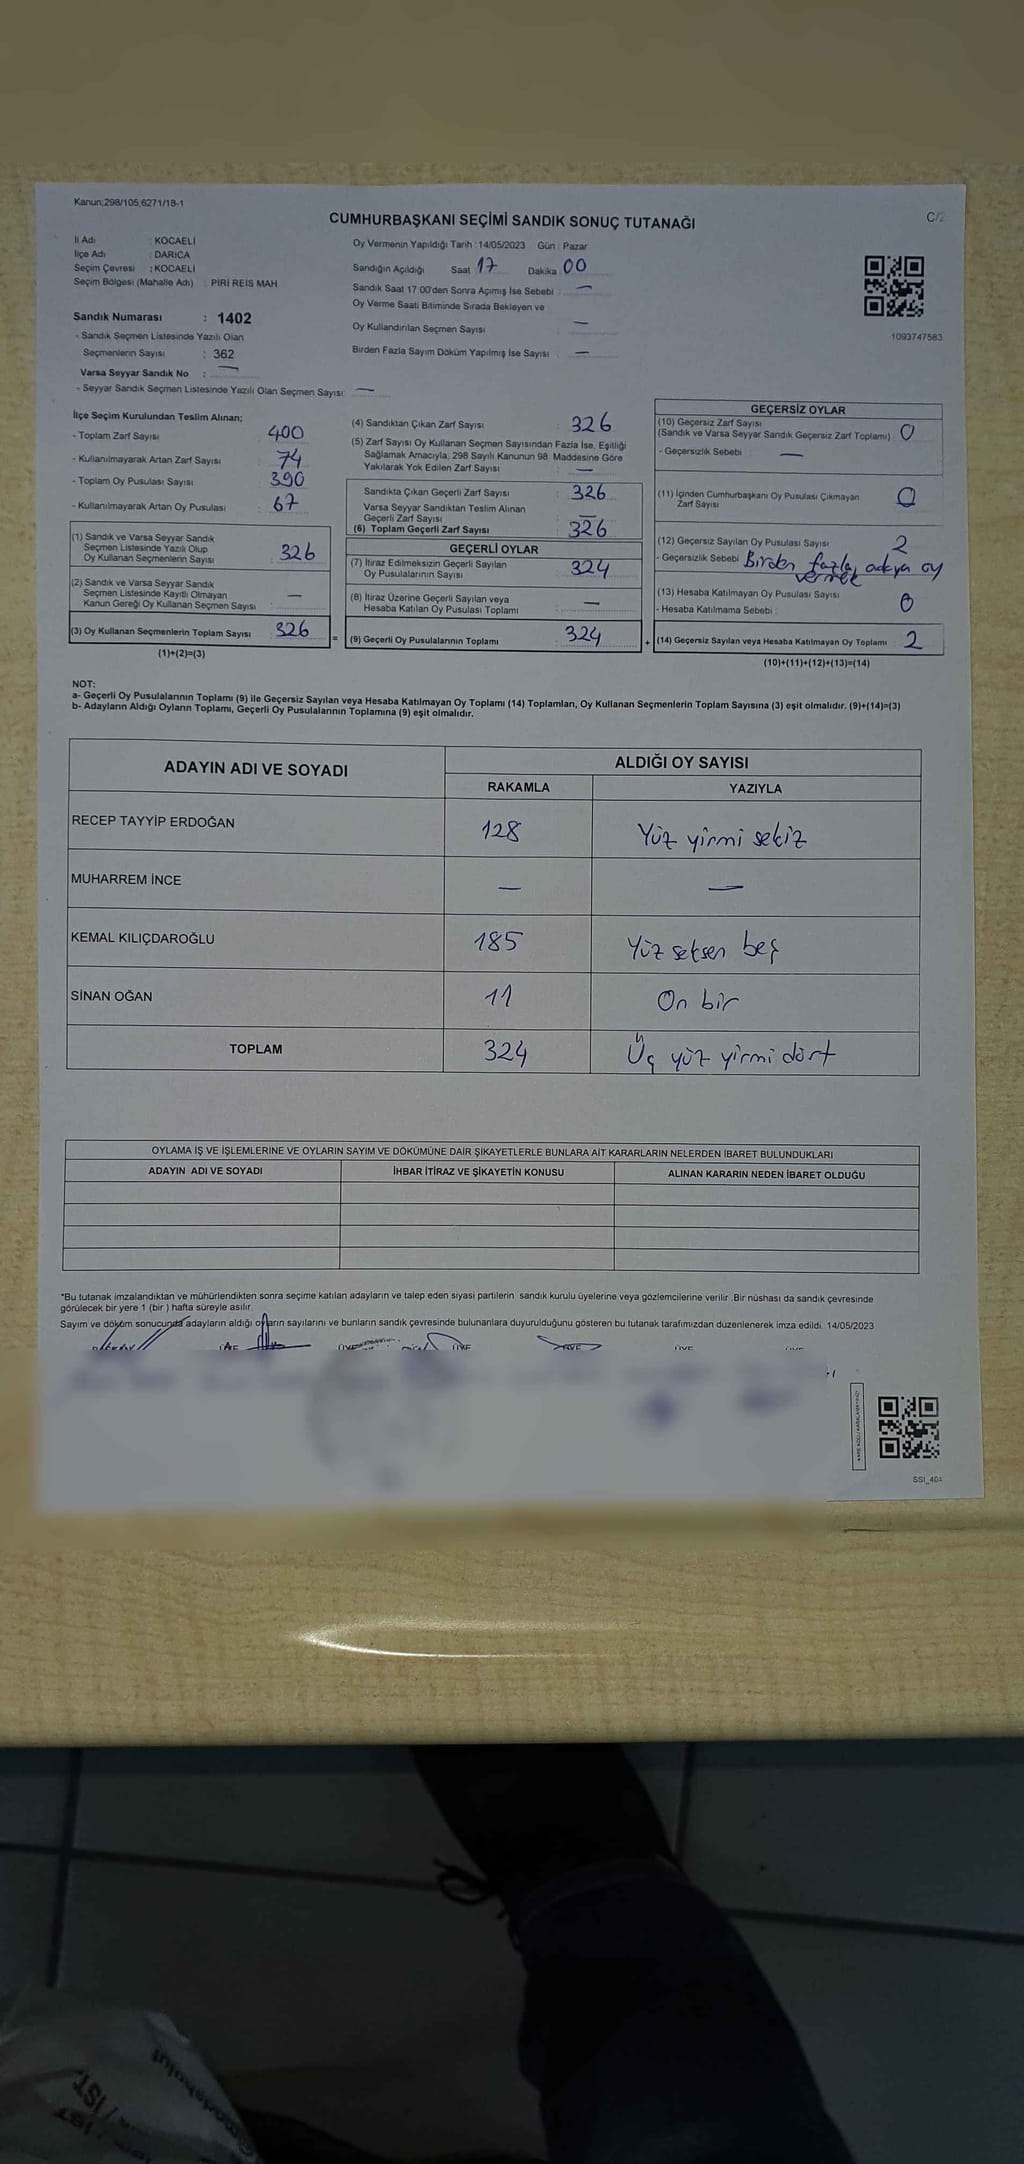 Kanun;298/105,6271/18-1
C/2
CUMHURBAŞKANI SEÇİMİ SANDIK SONUÇ TUTANAĞI
İl Adı : KOCAELİ
İlçe Adı : DARICA
Seçim Çevresi : KOCAELİ
Seçim Bölgesi (Mahalle Adı) : PİRİ REİS MAH.
Sandık Numarası : 1402
- Sandık Seçmen Listesinde Yazılı Olan
Seçmenlerin Sayısı : 362
Varsa Seyyar Sandık No : —
- Seyyar Sandık Seçmen Listesinde Yazılı Olan Seçmen Sayısı: —
Oy Vermenin Yapıldığı Tarih : 14/05/2023 Gün : Pazar
Sandığın Açıldığı Saat 17 Dakika 00
Sandık Saat 17:00'den Sonra Açımış İse Sebebi : —
Oy Verme Saati Bitiminde Sırada Bekleyen ve
Oy Kullandırılan Seçmen Sayısı : —
Birden Fazla Sayım Döküm Yapılmış İse Sayısı : —
1093747583
İlçe Seçim Kurulundan Teslim Alınan;
- Toplam Zarf Sayısı : 400
- Kullanılmayarak Artan Zarf Sayısı : 74
- Toplam Oy Pusulası Sayısı : 390
- Kullanılmayarak Artan Oy Pusulası : 67
(1) Sandık ve Varsa Seyyar Sandık
Seçmen Listesinde Yazılı Olup
Oy Kullanan Seçmenlerin Sayısı : 326
(2) Sandık ve Varsa Seyyar Sandık
Seçmen Listesinde Kayıtlı Olmayan
Kanun Gereği Oy Kullanan Seçmen Sayısı : —
(3) Oy Kullanan Seçmenlerin Toplam Sayısı : 326
(1)+(2)=(3)
=
(4) Sandıktan Çıkan Zarf Sayısı : 326
(5) Zarf Sayısı Oy Kullanan Seçmen Sayısından Fazla İse, Eşitliği
Sağlamak Amacıyla, 298 Sayılı Kanunun 98. Maddesine Göre
Yakılarak Yok Edilen Zarf Sayısı : —
Sandıkta Çıkan Geçerli Zarf Sayısı : 326
Varsa Seyyar Sandıktan Teslim Alınan
Geçerli Zarf Sayısı : —
(6) Toplam Geçerli Zarf Sayısı : 326
GEÇERLİ OYLAR
(7) İtiraz Edilmeksizin Geçerli Sayılan
Oy Pusulalarının Sayısı : 324
(8) İtiraz Üzerine Geçerli Sayılan veya
Hesaba Katılan Oy Pusulası Toplamı : —
(9) Geçerli Oy Pusulalarının Toplamı : 324
+
GEÇERSİZ OYLAR
(10) Geçersiz Zarf Sayısı
(Sandık ve Varsa Seyyar Sandık Geçersiz Zarf Toplamı) : 0
- Geçersizlik Sebebi : —
(11) İçinden Cumhurbaşkanı Oy Pusulası Çıkmayan
Zarf Sayısı : 0
(12) Geçersiz Sayılan Oy Pusulası Sayısı : 2
- Geçersizlik Sebebi : Birden fazla adaya oy
vermek
(13) Hesaba Katılmayan Oy Pusulası Sayısı : 0
- Hesaba Katılmama Sebebi :
(14) Geçersiz Sayılan veya Hesaba Katılmayan Oy Toplamı : 2
(10)+(11)+(12)+(13)=(14)
NOT:
a- Geçerli Oy Pusulalarının Toplamı (9) ile Geçersiz Sayılan veya Hesaba Katılmayan Oy Toplamı (14) Toplamları, Oy Kullanan Seçmenlerin Toplam Sayısına (3) eşit olmalıdır. (9)+(14)=(3)
b- Adayların Aldığı Oyların Toplamı, Geçerli Oy Pusulalarının Toplamına (9) eşit olmalıdır.
ADAYIN ADI VE SOYADI
ALDIĞI OY SAYISI
RAKAMLA YAZIYLA
RECEP TAYYİP ERDOĞAN 128 Yüz yirmi sekiz
MUHARREM İNCE — —
KEMAL KILIÇDAROĞLU 185 Yüz seksen beş
SİNAN OĞAN 11 On bir
TOPLAM 324 Üç yüz yirmi dört
OYLAMA İŞ VE İŞLEMLERİNE VE OYLARIN SAYIM VE DÖKÜMÜNE DAİR ŞİKAYETLERLE BUNLARA AİT KARARLARIN NELERDEN İBARET BULUNDUKLARI
ADAYIN ADI VE SOYADI İHBAR İTİRAZ VE ŞİKAYETİN KONUSU ALINAN KARARIN NEDEN İBARET OLDUĞU
*Bu tutanak imzalandıktan ve mühürlendikten sonra seçime katılan adayların ve talep eden siyasi partilerin sandık kurulu üyelerine veya gözlemcilerine verilir .Bir nüshası da sandık çevresinde
görülecek bir yere 1 (bir ) hafta süreyle asılır.
Sayım ve döküm sonucunda adayların aldığı oyların sayılarını ve bunların sandık çevresinde bulunanlara duyurulduğunu gösteren bu tutanak tarafımızdan düzenlenerek imza edildi. 14/05/2023
ÜYE ÜYE ÜYE ÜYE ÜYE
SSI_404